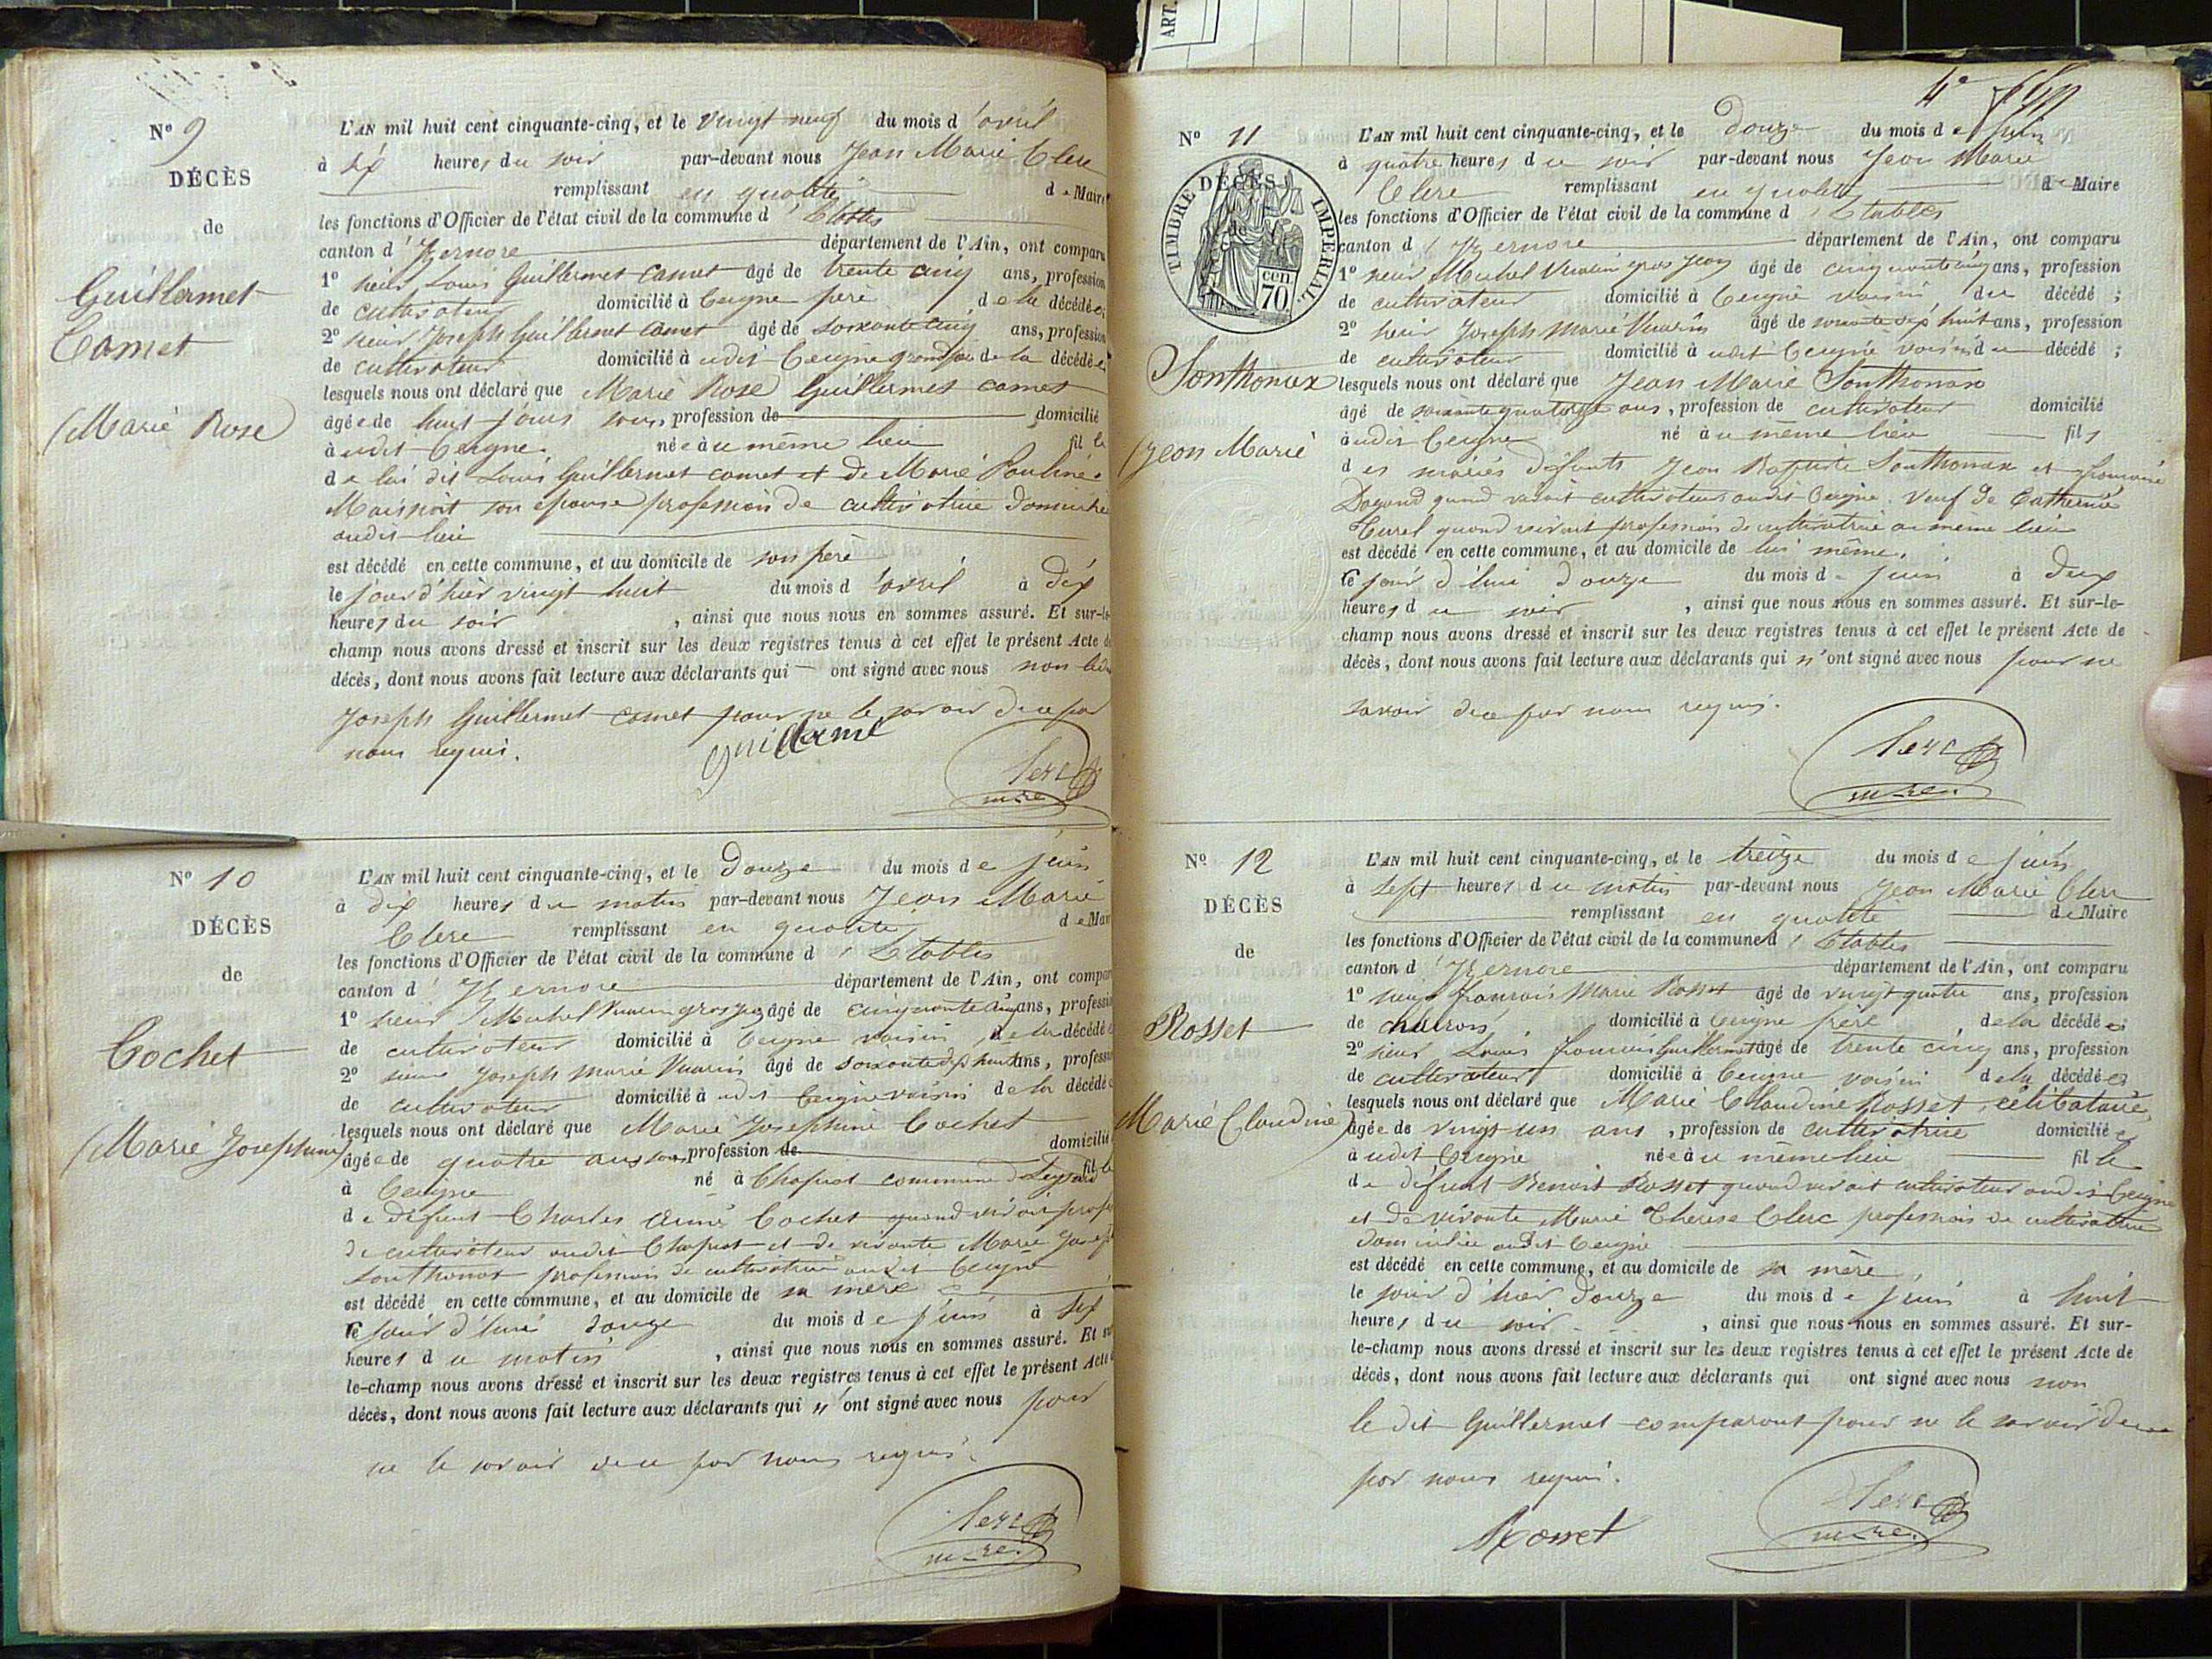 ART.
N° 9
DÉCÈS
de
Guillermet
Camet
(Marie Rose)
L'AN mil huit cent cinquante-cinq, et le vingt neuf du mois d'avril
à six heures du soir par-devant nous Jean Marie Clerc
remplissant en qualité de Maire
les fonctions d'Officier de l'état civil de la commune d'Etables
canton d'Izernore département de l'Ain, ont comparu
1° sieur Louis Guillermet Camet âgé de trente cinq ans, profession
de cultivateur domicilié à Ceigne père de la décédée;
2° sieur Joseph Guillermet Camet âgé de soixante cinq ans, profession
de cultivateur domicilié à udit Ceigne grand père de la décédée;
lesquels nous ont déclaré que Marie Rose Guillermet camet
âgée de huit jours sans, profession de domicilié
à udit Ceigne née à u même lieu fille
de lui dit Louis Guillermet camet et de Marie Pauline
Maissiat son épouse profession de cultivatrice domiciliée
audit lieu
est décédé en cette commune, et au domicile de son père
le jour d'hier vingt huit du mois d'avril à dix
heures du soir, ainsi que nous nous en sommes assuré. Et sur-le-
champ nous avons dressé et inscrit sur les deux registres tenus à cet effet le présent Acte de
décès, dont nous avons fait lecture aux déclarants qui ont signé avec nous non ledit
Joseph Guillermet camet pour ne le savoir de ce par
nous requis.
Guillerme
Clerc
mre
N° 10
DÉCÈS
de
Cochet
(Marie Josephine)
L'AN mil huit cent cinquante-cinq, et le Douze du mois de juin
à dix heures du matin par-devant nous Jean Marie
Clerc remplissant en qualité de Maire
les fonctions d'Officier de l'état civil de la commune d'Etables
canton d'Izernore département de l'Ain, ont comparu
1° sieur Michel Vuarin gros jean âgé de cinquante cinq ans, profession
de cultivateur domicilié à Ceigne voisin de la décédée
2° sieur Joseph Marie Vuarin âgé de soixante dix huit ans, profession
de cultivateur domicilié à udit Ceigne voisin de la décédée
lesquels nous ont déclaré que Marie Josephine Cochet
âgée de quatre ans sans profession de domicilié
à Ceigne né à Chapiat commune de Leyssard fille
de défunt Charles Aimé Cochet quand vivait profession
de cultivateur audit Chapiat et de vivante Marie Joseph
Sonthonax profession de cultivatrice audit Ceigne
est décédé en cette commune, et au domicile de sa mère
le jour d'hui douze du mois de juin à six
heures du matin, ainsi que nous nous en sommes assuré. Et sur-
le-champ nous avons dressé et inscrit sur les deux registres tenus à cet effet le présent Acte de
décès, dont nous avons fait lecture aux déclarants qui n'ont signé avec nous pour
ne le savoir de ce par nous requis.
Clerc
mre.
4e
N° 11
DÉCÈS
de
TIMBRE IMPÉRIAL.
70 cen
Sonthonax
(Jean Marie
L'AN mil huit cent cinquante-cinq, et le douze du mois de juin
à quatre heures du soir par-devant nous Jean Marie
Clerc remplissant en qualité de Maire
les fonctions d'Officier de l'état civil de la commune d'Etables
canton d'Izernore département de l'Ain, ont comparu
1° sieur Michel Vuarin gros Jean âgé de cinquante cinq ans, profession
de cultivateur domicilié à Ceigne voisin, du décédé;
2° sieur Joseph Marie Vuarin âgé de soixante dix huit ans, profession
de cultivateur domicilié à udit Ceigne voisin du décédé;
lesquels nous ont déclaré que Jean Marie Sonthonax
âgé de soixante quatorze ans, profession de cultivateur domicilié
à udit Ceigne né à u même lieu fils
des mariés défunts Jean Baptiste Sonthonax et
quand vivait cultivateurs audit Ceigne. Veuf de Catherine
quand vivait profession de cultivatrice au même lieu
est décédé en cette commune, et au domicile de lui même,
le jour d'hui douze du mois de juin à deux
heures du soir, ainsi que nous nous en sommes assuré. Et sur-le-
champ nous avons dressé et inscrit sur les deux registres tenus à cet effet le présent Acte de
décès, dont nous avons fait lecture aux déclarants qui n'ont signé avec nous pour ne
savoir de ce par nous requis.
Clerc
mre.
N° 12
DÉCÈS
de
Rosset
Marie Claudine)
L'AN mil huit cent cinquante-cinq, et le treize du mois de juin
à sept heures du matin par-devant nous Jean Marie Clerc
remplissant en qualité de Maire
les fonctions d'Officier de l'état civil de la commune d'Etables
canton d'Izernore département de l'Ain, ont comparu
1° sieur françois Marie Rosset âgé de vingt quatre ans, profession
de charron, domicilié à Ceigne frère de la décédée;
2° sieur Louis françois Guillermet âgé de trente cinq ans, profession
de cultivateur domicilié à Ceigne voisin de la décédée
lesquels nous ont déclaré que Marie Claudine Rosset, célibataire,
âgée de vingt un ans, profession de cultivatrice domiciliée
à udit Ceigne née à u même lieu fille
de défunt Benoit Rosset quand vivait cultivateur audit Ceigne
et de vivante Marie Therese Clerc profession de cultivatrice
domiciliée audit Ceigne
est décédé en cette commune, et au domicile de sa mère,
le jour d'hier douze du mois de juin à huit
heures du soir, ainsi que nous nous en sommes assuré. Et sur-
le-champ nous avons dressé et inscrit sur les deux registres tenus à cet effet le présent Acte de
décès, dont nous avons fait lecture aux déclarants qui ont signé avec nous non
le dit Guillermet comparant pour ne le savoir de ce
par nous requis.
Rosset
Clerc
mre.